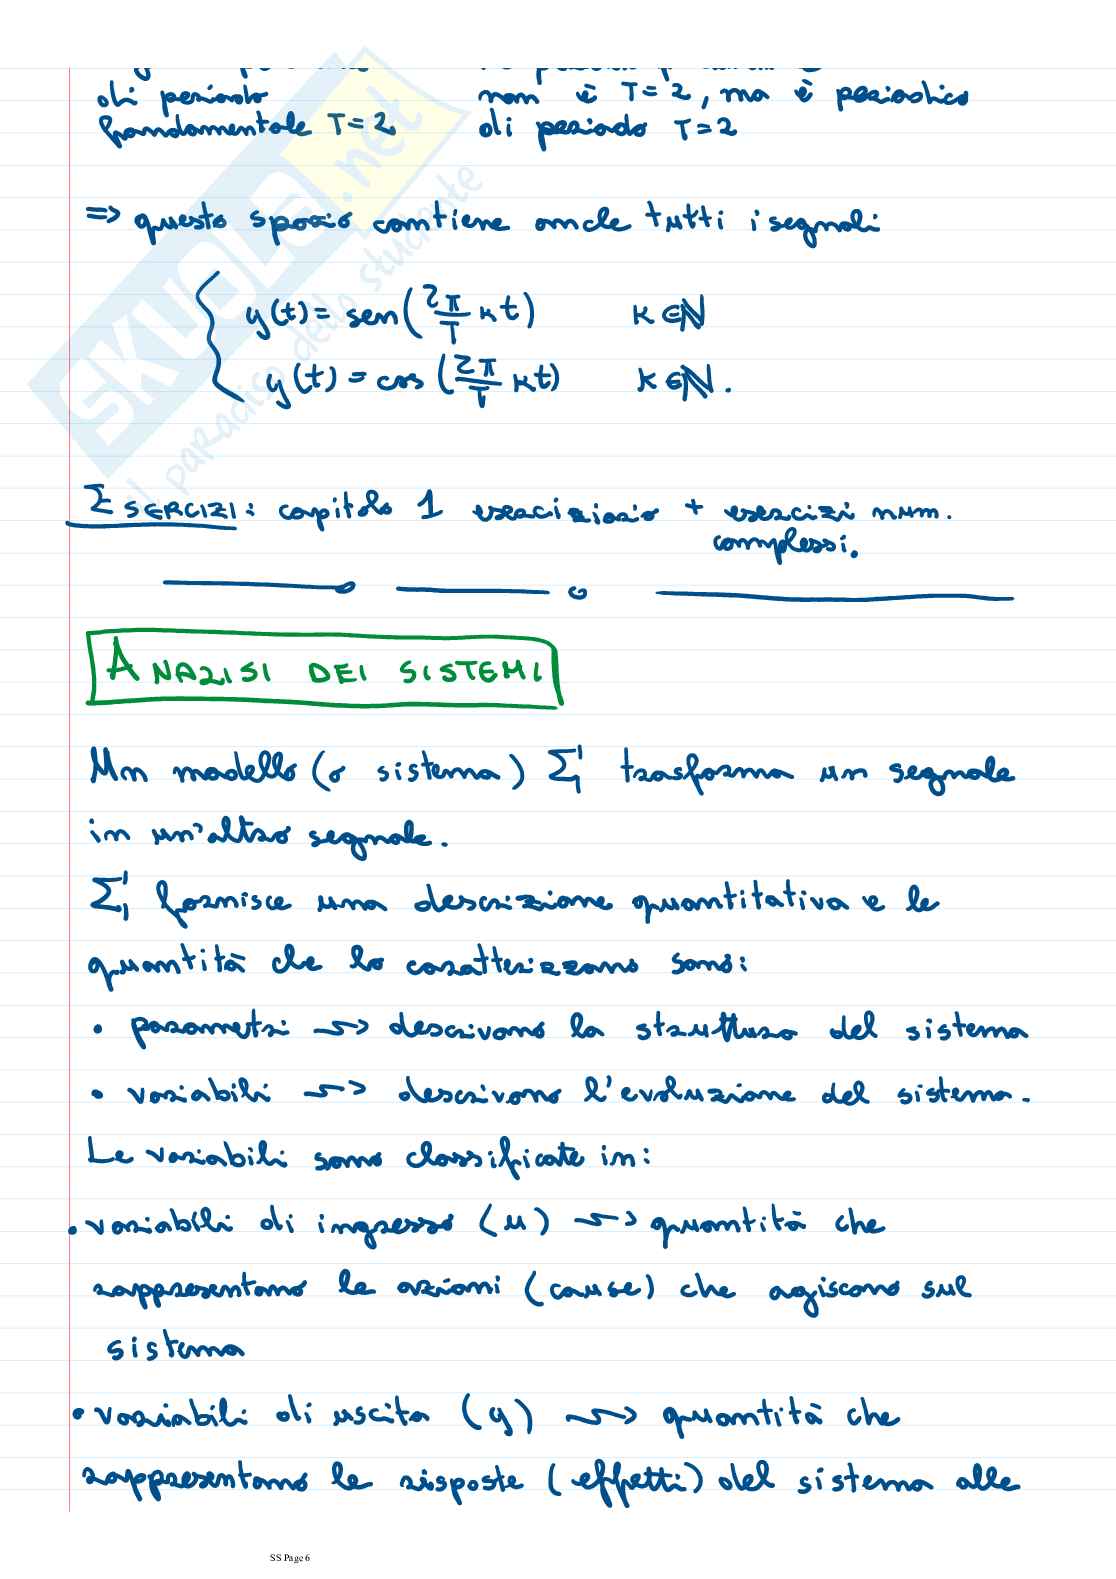 di periodo
fondamentale T=2.
non è T=2, ma è periodico
di periodo T=2
=> questo spazio contiene anche tutti i segnali
y(t) = sen(2π/T kt) k∈ℕ
y(t) = cos(2π/T kt) k∈ℕ.
ESERCIZI: capitolo 1 eserciziario + esercizi num.
complessi.
ANALISI DEI SISTEMI
Un modello (o sistema) Σ trasforma un segnale
in un'altro segnale.
Σ fornisce una descrizione quantitativa e le
quantità che lo caratterizzano sono:
• parametri ⤳ descrivono la struttura del sistema
• variabili ⤳ descrivono l'evoluzione del sistema.
Le variabili sono classificate in:
• variabili di ingresso (u) ⤳ quantità che
rappresentano le azioni (cause) che agiscono sul
sistema
• variabili di uscita (y) ⤳ quantità che
rappresentano le risposte (effetti) del sistema alle
SKUOLA.net
il paradiso dello studente
SS Page 6